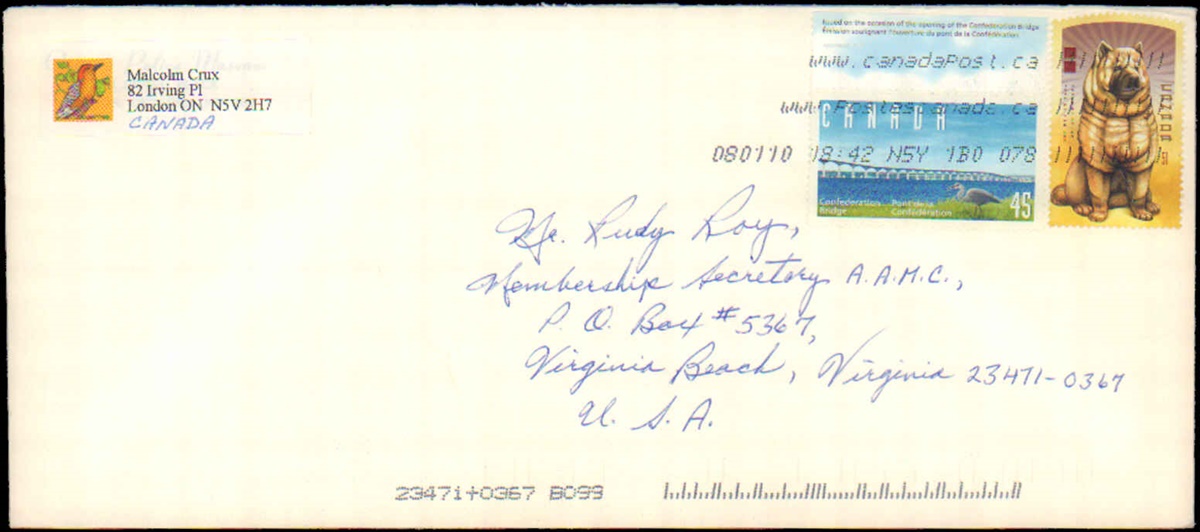 Malcolm Crux
82 Irving Pl
London ON N5V 2H7
CANADA
Issued on the occasion of the opening of the Confederation Bridge
Émission soulignant l'ouverture du pont de la Confédération
www.canadaPost.ca
www.Postescanada.ca
CANADA
080110 18:42 N5Y 1B0 078
Confederation Bridge
Pont de la Confédération
45
CANADA
Mr. Rudy Roy,
Membership Secretary A.A.M.C.,
P. O. Box #5367,
Virginia Beach, Virginia 23471-0367
U. S. A.
23471+0367 B099